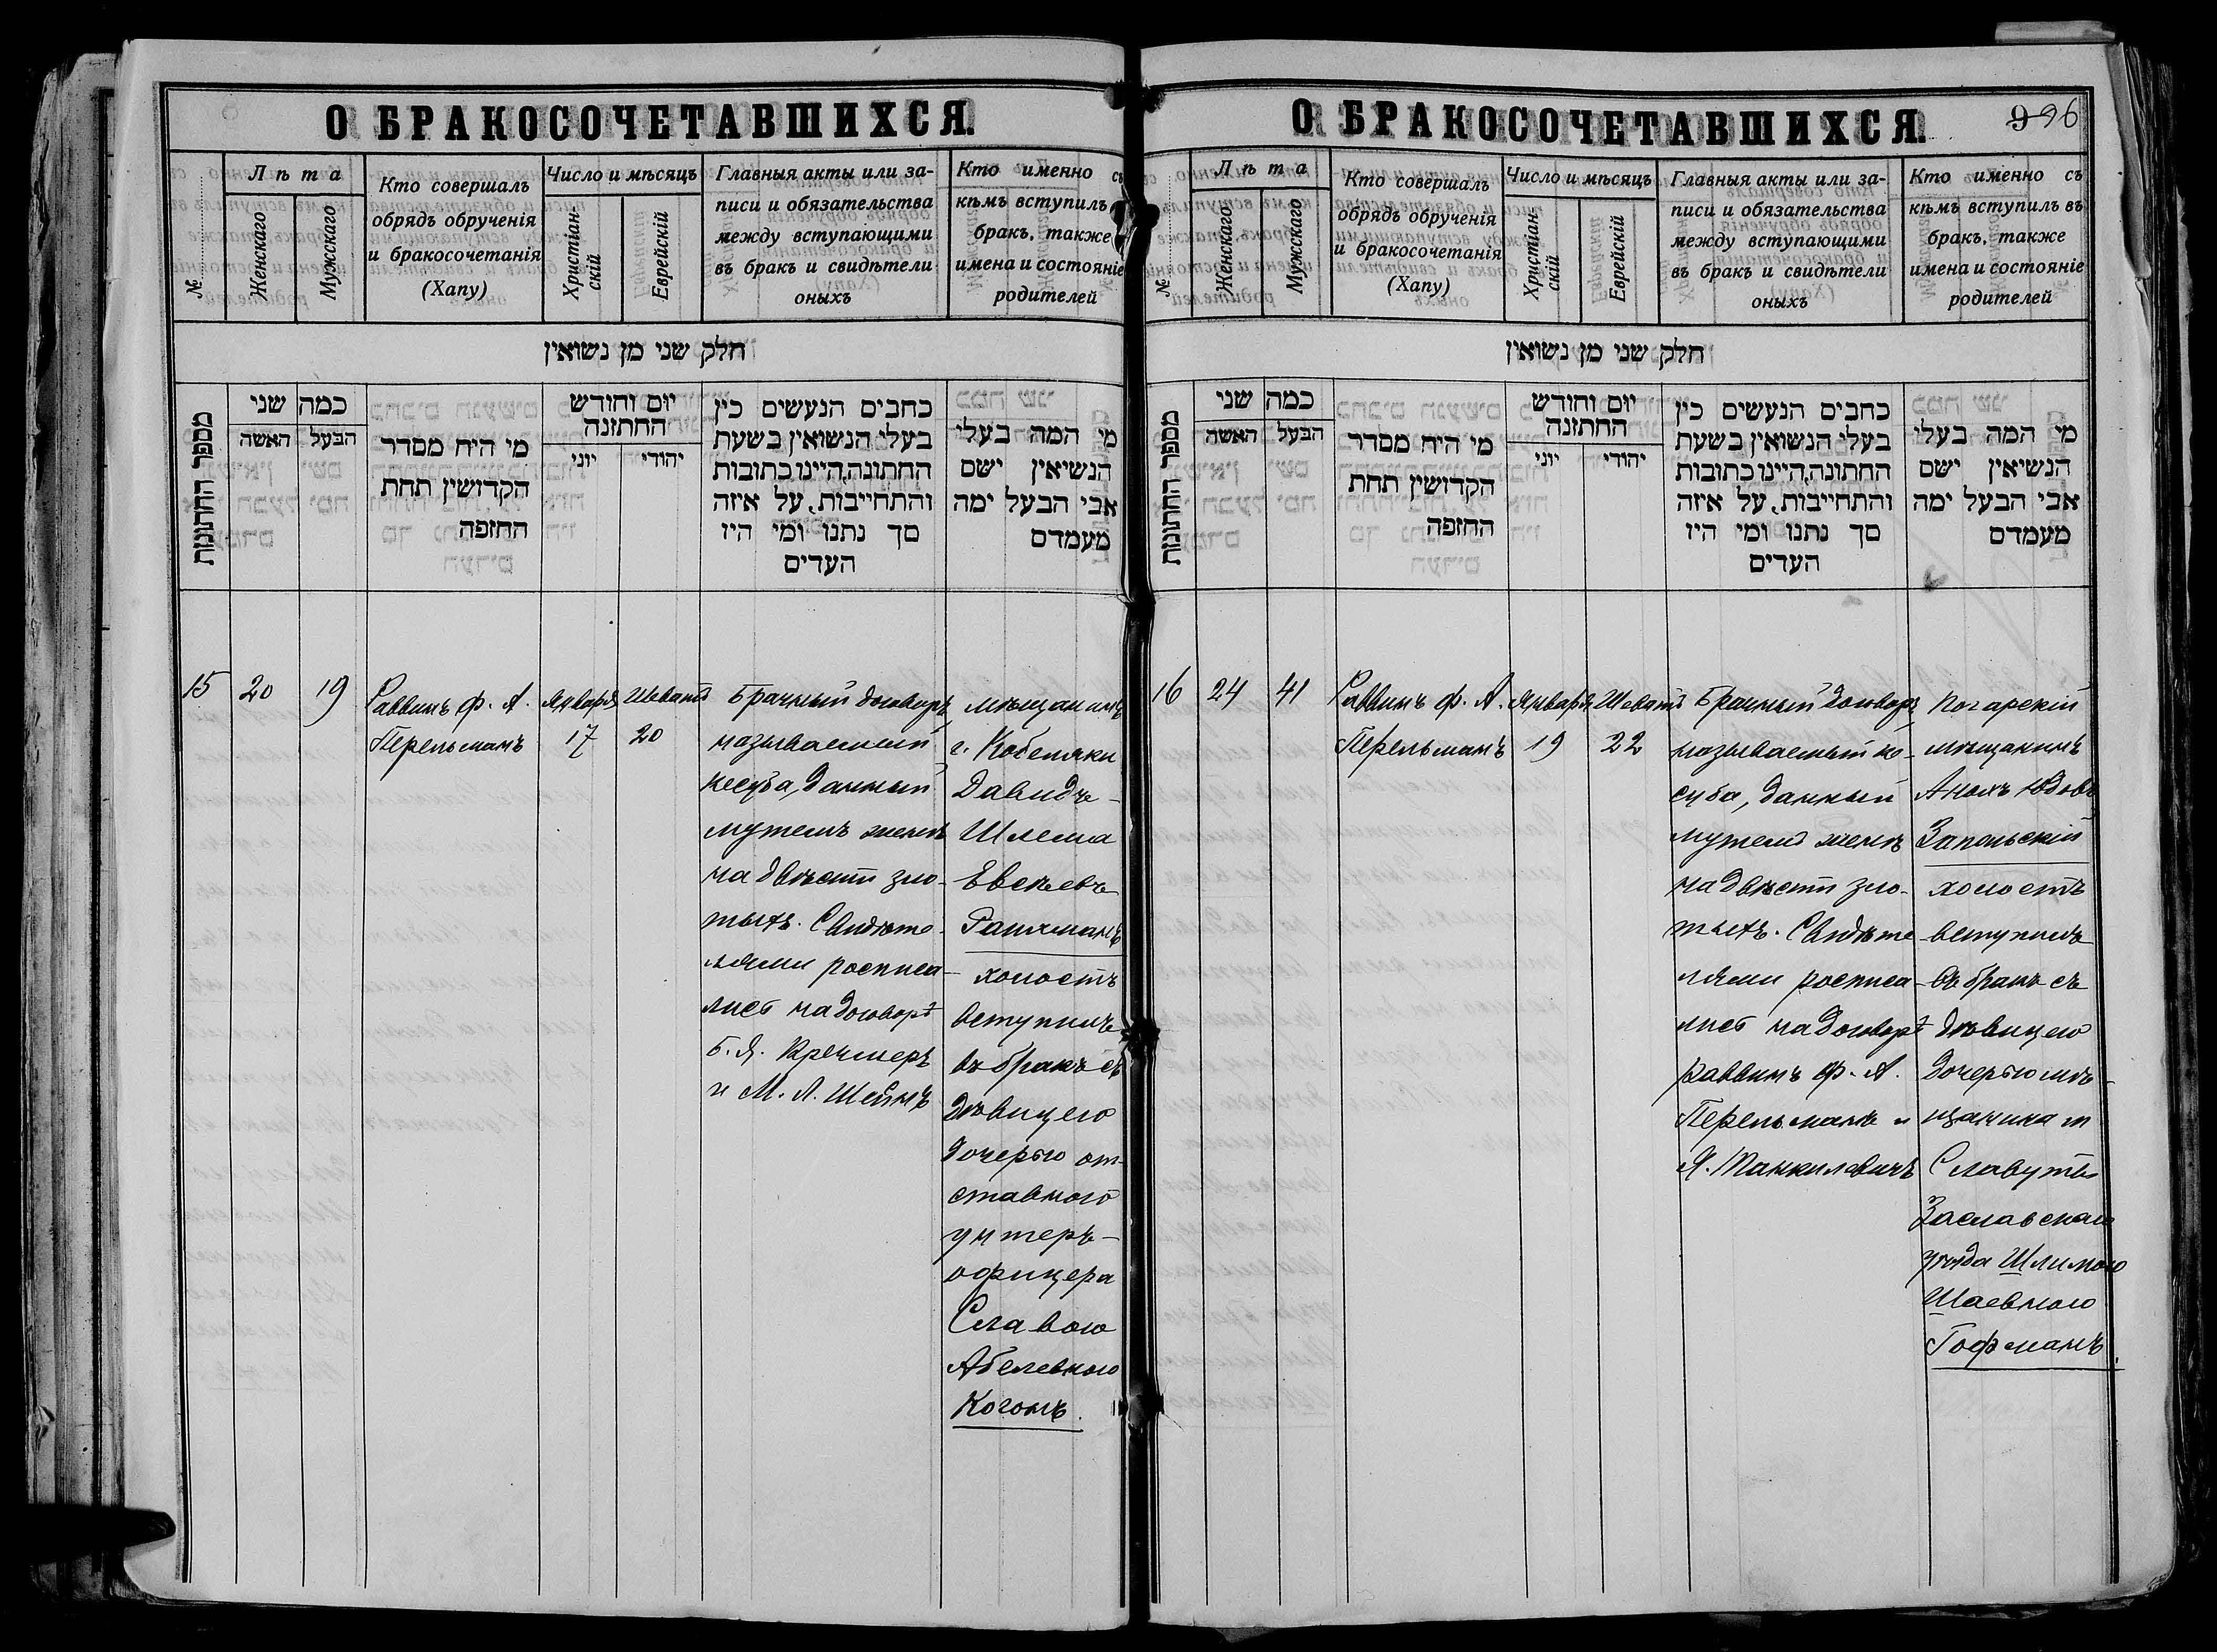 О БРАКОСОЧЕТАВШИХСЯ.
№
Лѣта
Женскаго
Мужскаго
Кто совершалъ
обрядъ обрученія
и бракосочетанія
(Хапу)
Число и мѣсяцъ
Христіан-
скій
Еврейскій
Главныя акты или за-
писи и обязательства
между вступающими
въ бракъ и свидѣтели
оныхъ
Кто именно съ
кѣмъ вступилъ
бракъ, также
имена и состояніе
родителей
חלק שני מן נשואין
מספר החתונות
כמה שני
האשה
הבעל
מי היח מסדר
הקדושין תחת
החופה
יום וחודש
החתונה
יוני
יהודי
כחבים הנעשים כין
בעלי הנשואין בשעת
החתונה,היינו כתובות
והתחייבות, על איזה
סך נתנו ומי היו
העדים
מי המה בעלי
הנשיאין ישם
אבי הבעל ימה
מעמדם
15
20
19
Раввинъ Ф. А.
Перельманъ
Января
17
Шеватъ
20
Брачный договоръ,
называемый
кесуба, данный
мужемъ женѣ
на двѣсти зло-
тыхъ. Свидѣте-
лями росписа-
лись на договорѣ
Б. Я. Кречмеръ
и М. Л. Шейнъ
мѣщанинъ
г. Кобеляки
Давидъ-
Шлема
Евсѣевъ
холостъ
вступилъ
въ бракъ съ
дѣвицею
дочерью от-
ставного
унтеръ-
офицера
Славою
Абелевною
Когонъ.
О БРАКОСОЧЕТАВШИХСЯ.
96
№
Лѣта
Женскаго
Мужскаго
Кто совершалъ
обрядъ обрученія
и бракосочетанія
(Хапу)
Число и мѣсяцъ
Христіан-
скій
Еврейскій
Главныя акты или за-
писи и обязательства
между вступающими
въ бракъ и свидѣтели
оныхъ
Кто именно съ
кѣмъ вступилъ въ
бракъ, также
имена и состояніе
родителей
חלק שני מן נשואין
מספר החתונות
כמה שני
האשה
הבעל
מי היח מסדר
הקדושין תחת
החופה
יום וחודש
החתונה
יוני
יהודי
כחבים הנעשים כין
בעלי הנשואין בשעת
החתונה,היינו כתובות
והתחייבות, על איזה
סך נתנו ומי היו
העדים
מי המה בעלי
הנשיאין ישם
אבי הבעל ימה
מעמדם
16
24
41
Раввинъ Ф. А.
Перельманъ
Января
19
Шеватъ
22
Брачный договоръ,
называемый ке-
суба, данный
мужемъ женѣ
на двѣсти зло-
тыхъ. Свидѣте-
лями росписа-
лись на договорѣ
Раввинъ Ф. А.
Перельманъ и
Я. Манкилевичъ
Погарскій
мѣщанинъ
Анохъ Юдовъ
Запольскій
холостъ
вступилъ
въ бракъ съ
дѣвицею
дочерью мѣ-
щанина м
Славуты
Заславскаго
уѣзда Шлимою
Шаевною
Гофманъ.